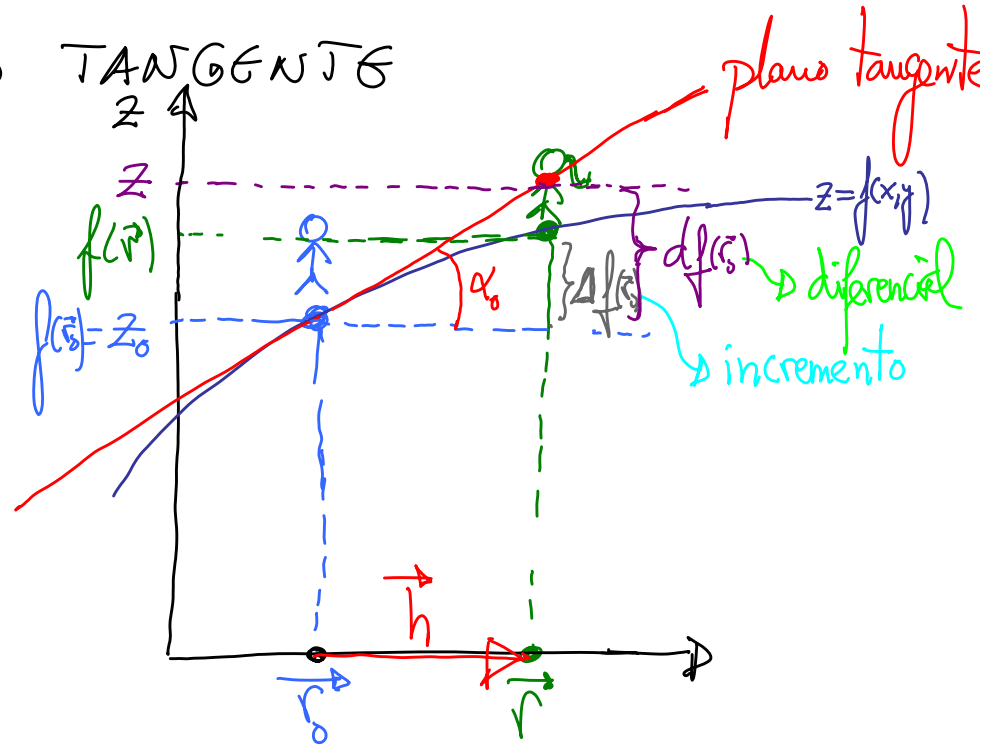 TANGENTE
z
plano tangente
z
z=f(x,y)
f(r⃗)
α₀
Δf(r⃗₀)
df(r⃗₀)
diferencial
f(r⃗₀)=z₀
incremento
h⃗
r⃗₀
r⃗